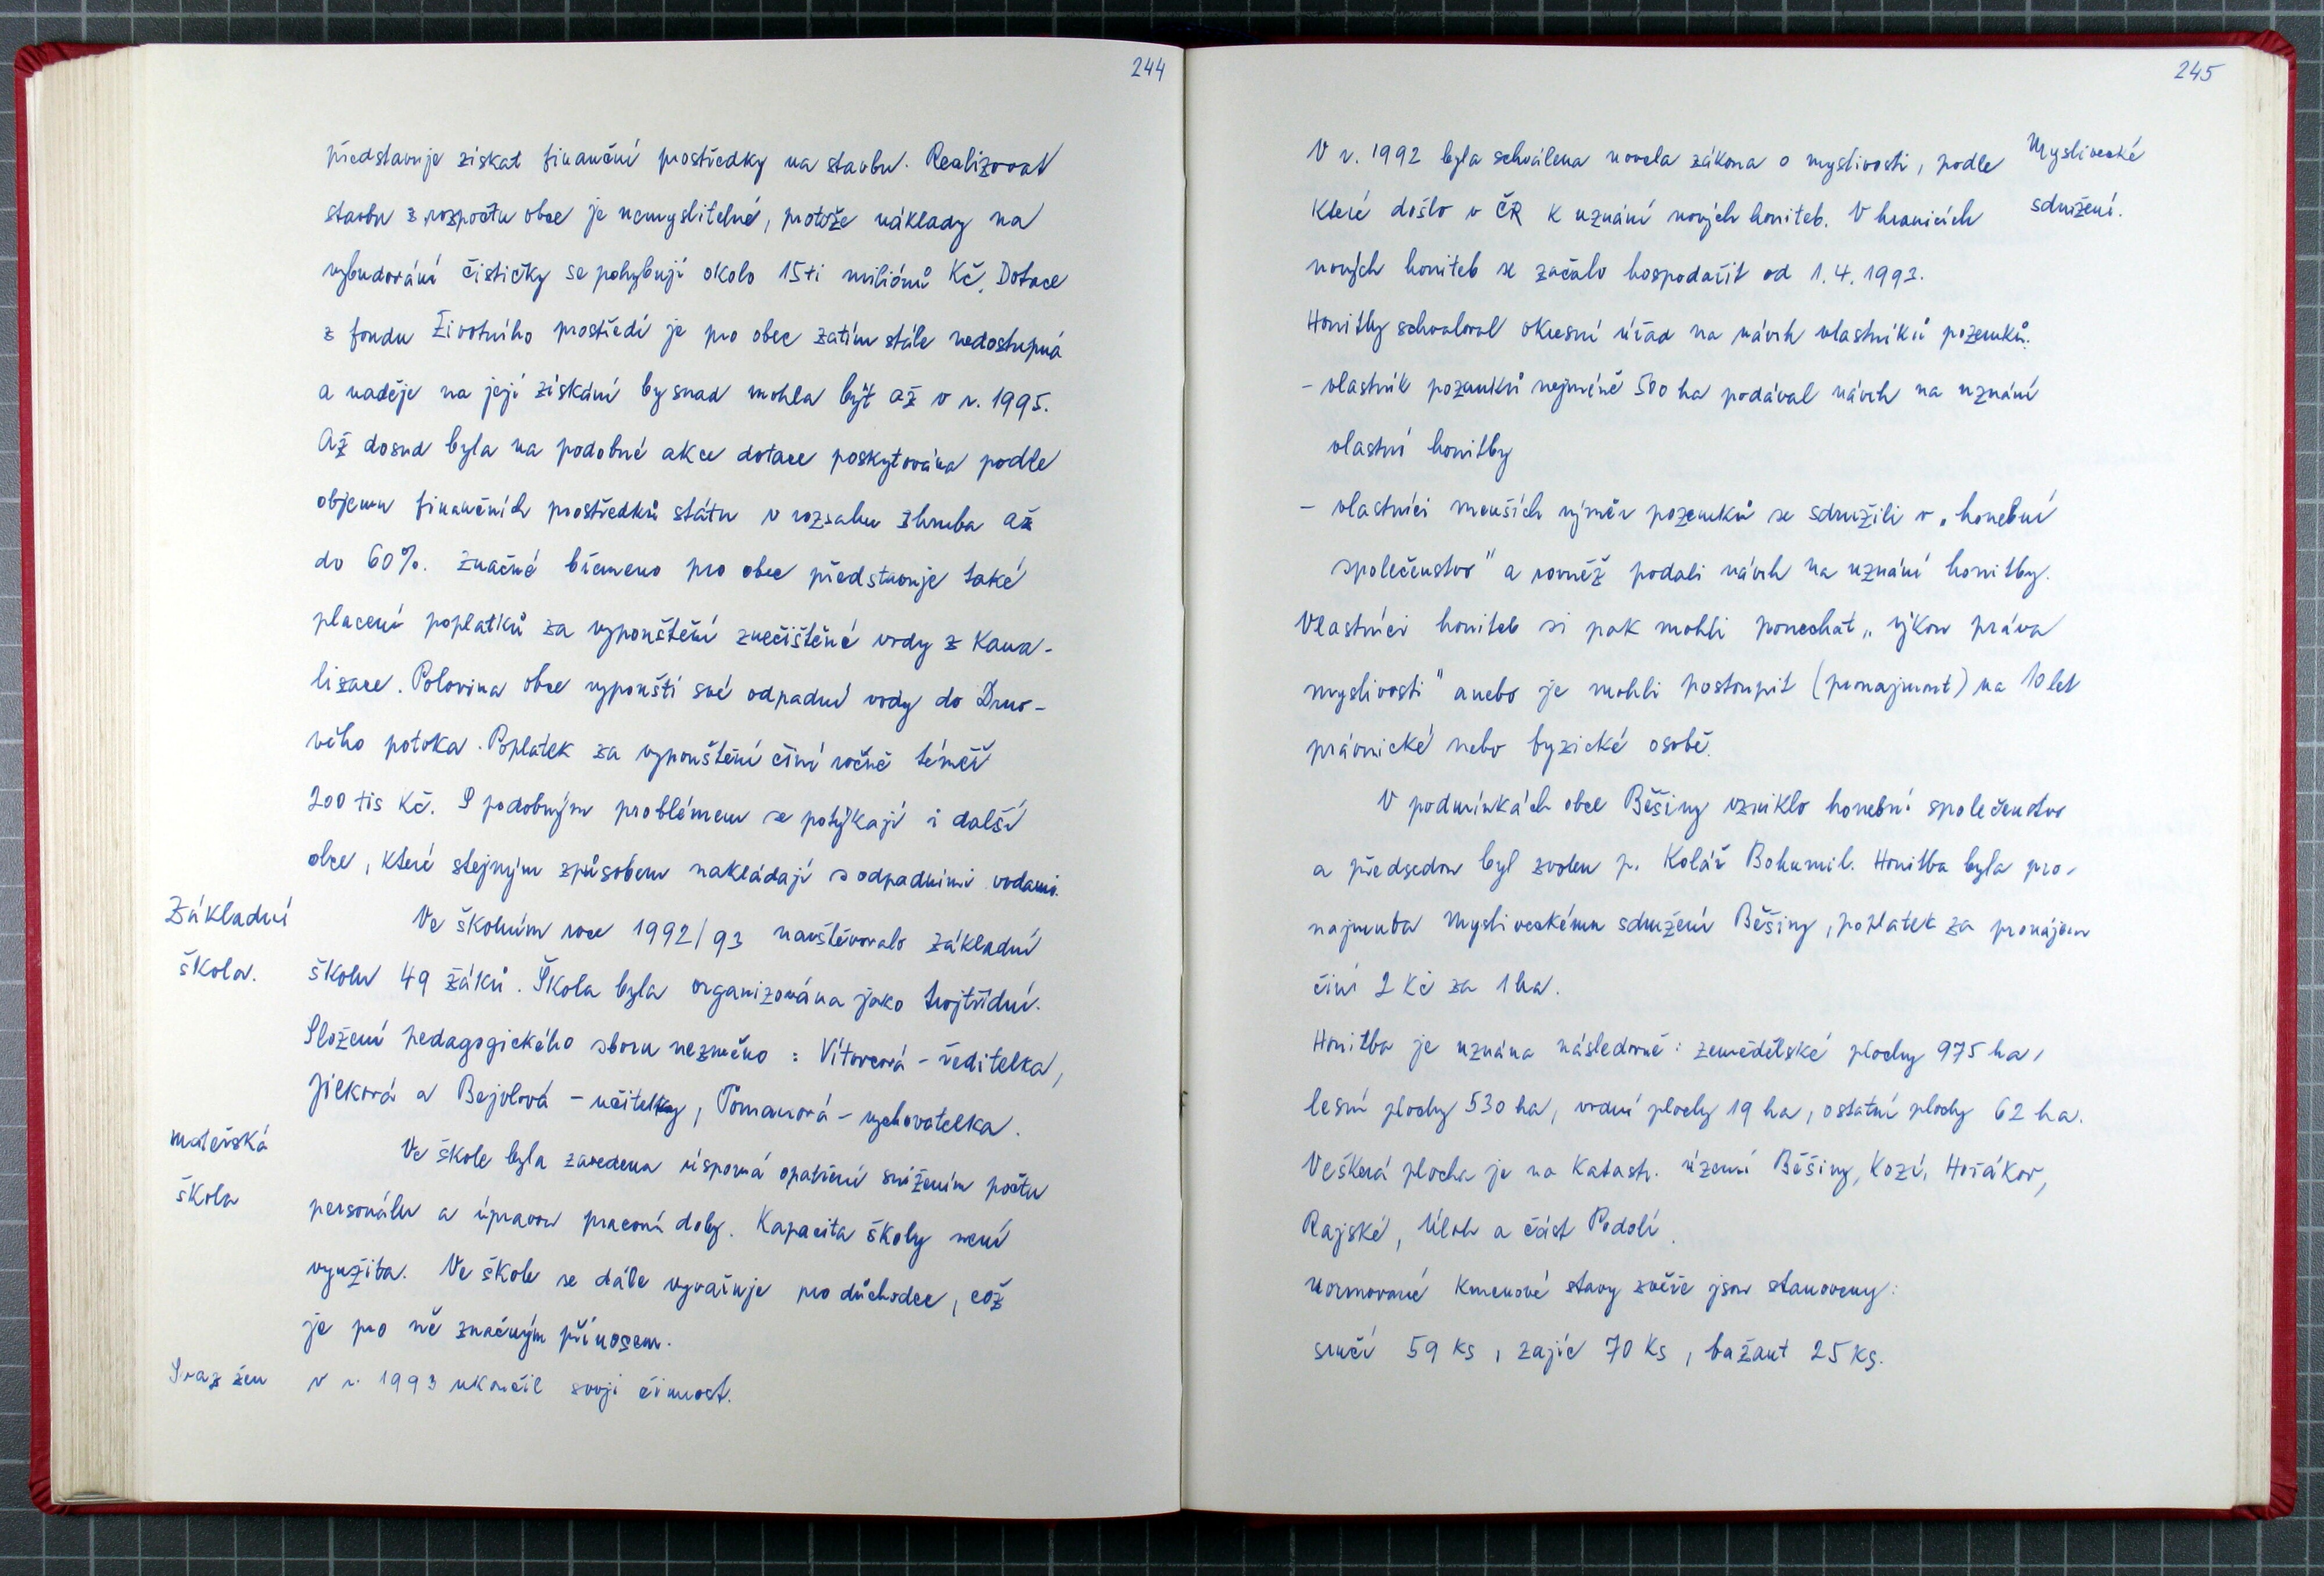 244
představuje získat finanční prostředky na stavbu. Realizovat
stavbu z rozpočtu obce je nemyslitelné, protože náklady na
vybudování čističky se pohybují okolo 15ti miliónů Kč. Dotace
z fondu Životního prostředí je pro obec zatím stále nedostupná
a naděje na její získání by snad mohla být až v r. 1995.
Až dosud byla na podobné akce dotace poskytována podle
objemu finančních prostředků státu v rozsahu zhruba až
do 60%. Značné břemeno pro obec představuje také
placení poplatků za vypouštění znečištěné vody z kana-
lisace. Polovina obce vypouští své odpadní vody do Drno-
vého potoka. Poplatek za vypouštění činí ročně téměř
200 tis Kč. S podobným problémem se potýkají i další
obce, které stejným způsobem nakládají s odpadními vodami.
Základní
škola.
Ve školním roce 1992/93 navštěvovalo základní
školu 49 žáků. Škola byla organizována jako trojtřídní.
Složení pedagogického sboru nezměno: Vítovcová - ředitelka,
Jílková a Bejvlová - učitelky, Tomanová - vychovatelka.
mateřská
škola
Ve škole byla zavedena úsporná opatření snížením počtu
personálu a úpravou pracovní doby. Kapacita školy není
využita. Ve škole se dále vyvařuje pro důchodce, což
je pro ně značným přínosem.
Svaz žen
v r. 1993 ukončil svoji činnost.
245
Myslivecké
sdružení.
V r. 1992 byla schválena novela zákona o myslivosti, podle
které došlo v ČR k uznání nových honiteb. V hranicích
nových honiteb se začalo hospodařit od 1.4.1993.
Honitby schvaloval okresní úřad na návrh vlastníků pozemků:
- vlastník pozemků nejméně 500 ha podával návrh na uznání
vlastní honitby
- vlastníci menších výměr pozemků se sdružili v „honební
společenstvo" a rovněž podali návrh na uznání honitby.
Vlastníci honiteb si pak mohli ponechat „výkon práva
myslivosti" anebo je mohli postoupit (pronajmout) na 10 let
právnické nebo fyzické osobě.
V podmínkách obce Běšiny vzniklo honební společenstvo
a předsedou byl zvolen p. Kolář Bohumil. Honitba byla pro-
najmuta Mysliveckému sdružení Běšiny, poplatek za pronájem
činí 2 Kč za 1 ha.
Honitba je uznána následovně: zemědělské plochy 975 ha,
lesní plochy 530 ha, vodní plochy 19 ha, ostatní plochy 62 ha.
Veškerá plocha je na katastr. území Běšiny, Kozí, Hořákov,
Rajské, Úloh a část Podolí.
Normované kmenové stavy zvěře jsou stanoveny:
srnčí 59 ks, zajíc 70 ks, bažant 25 ks.